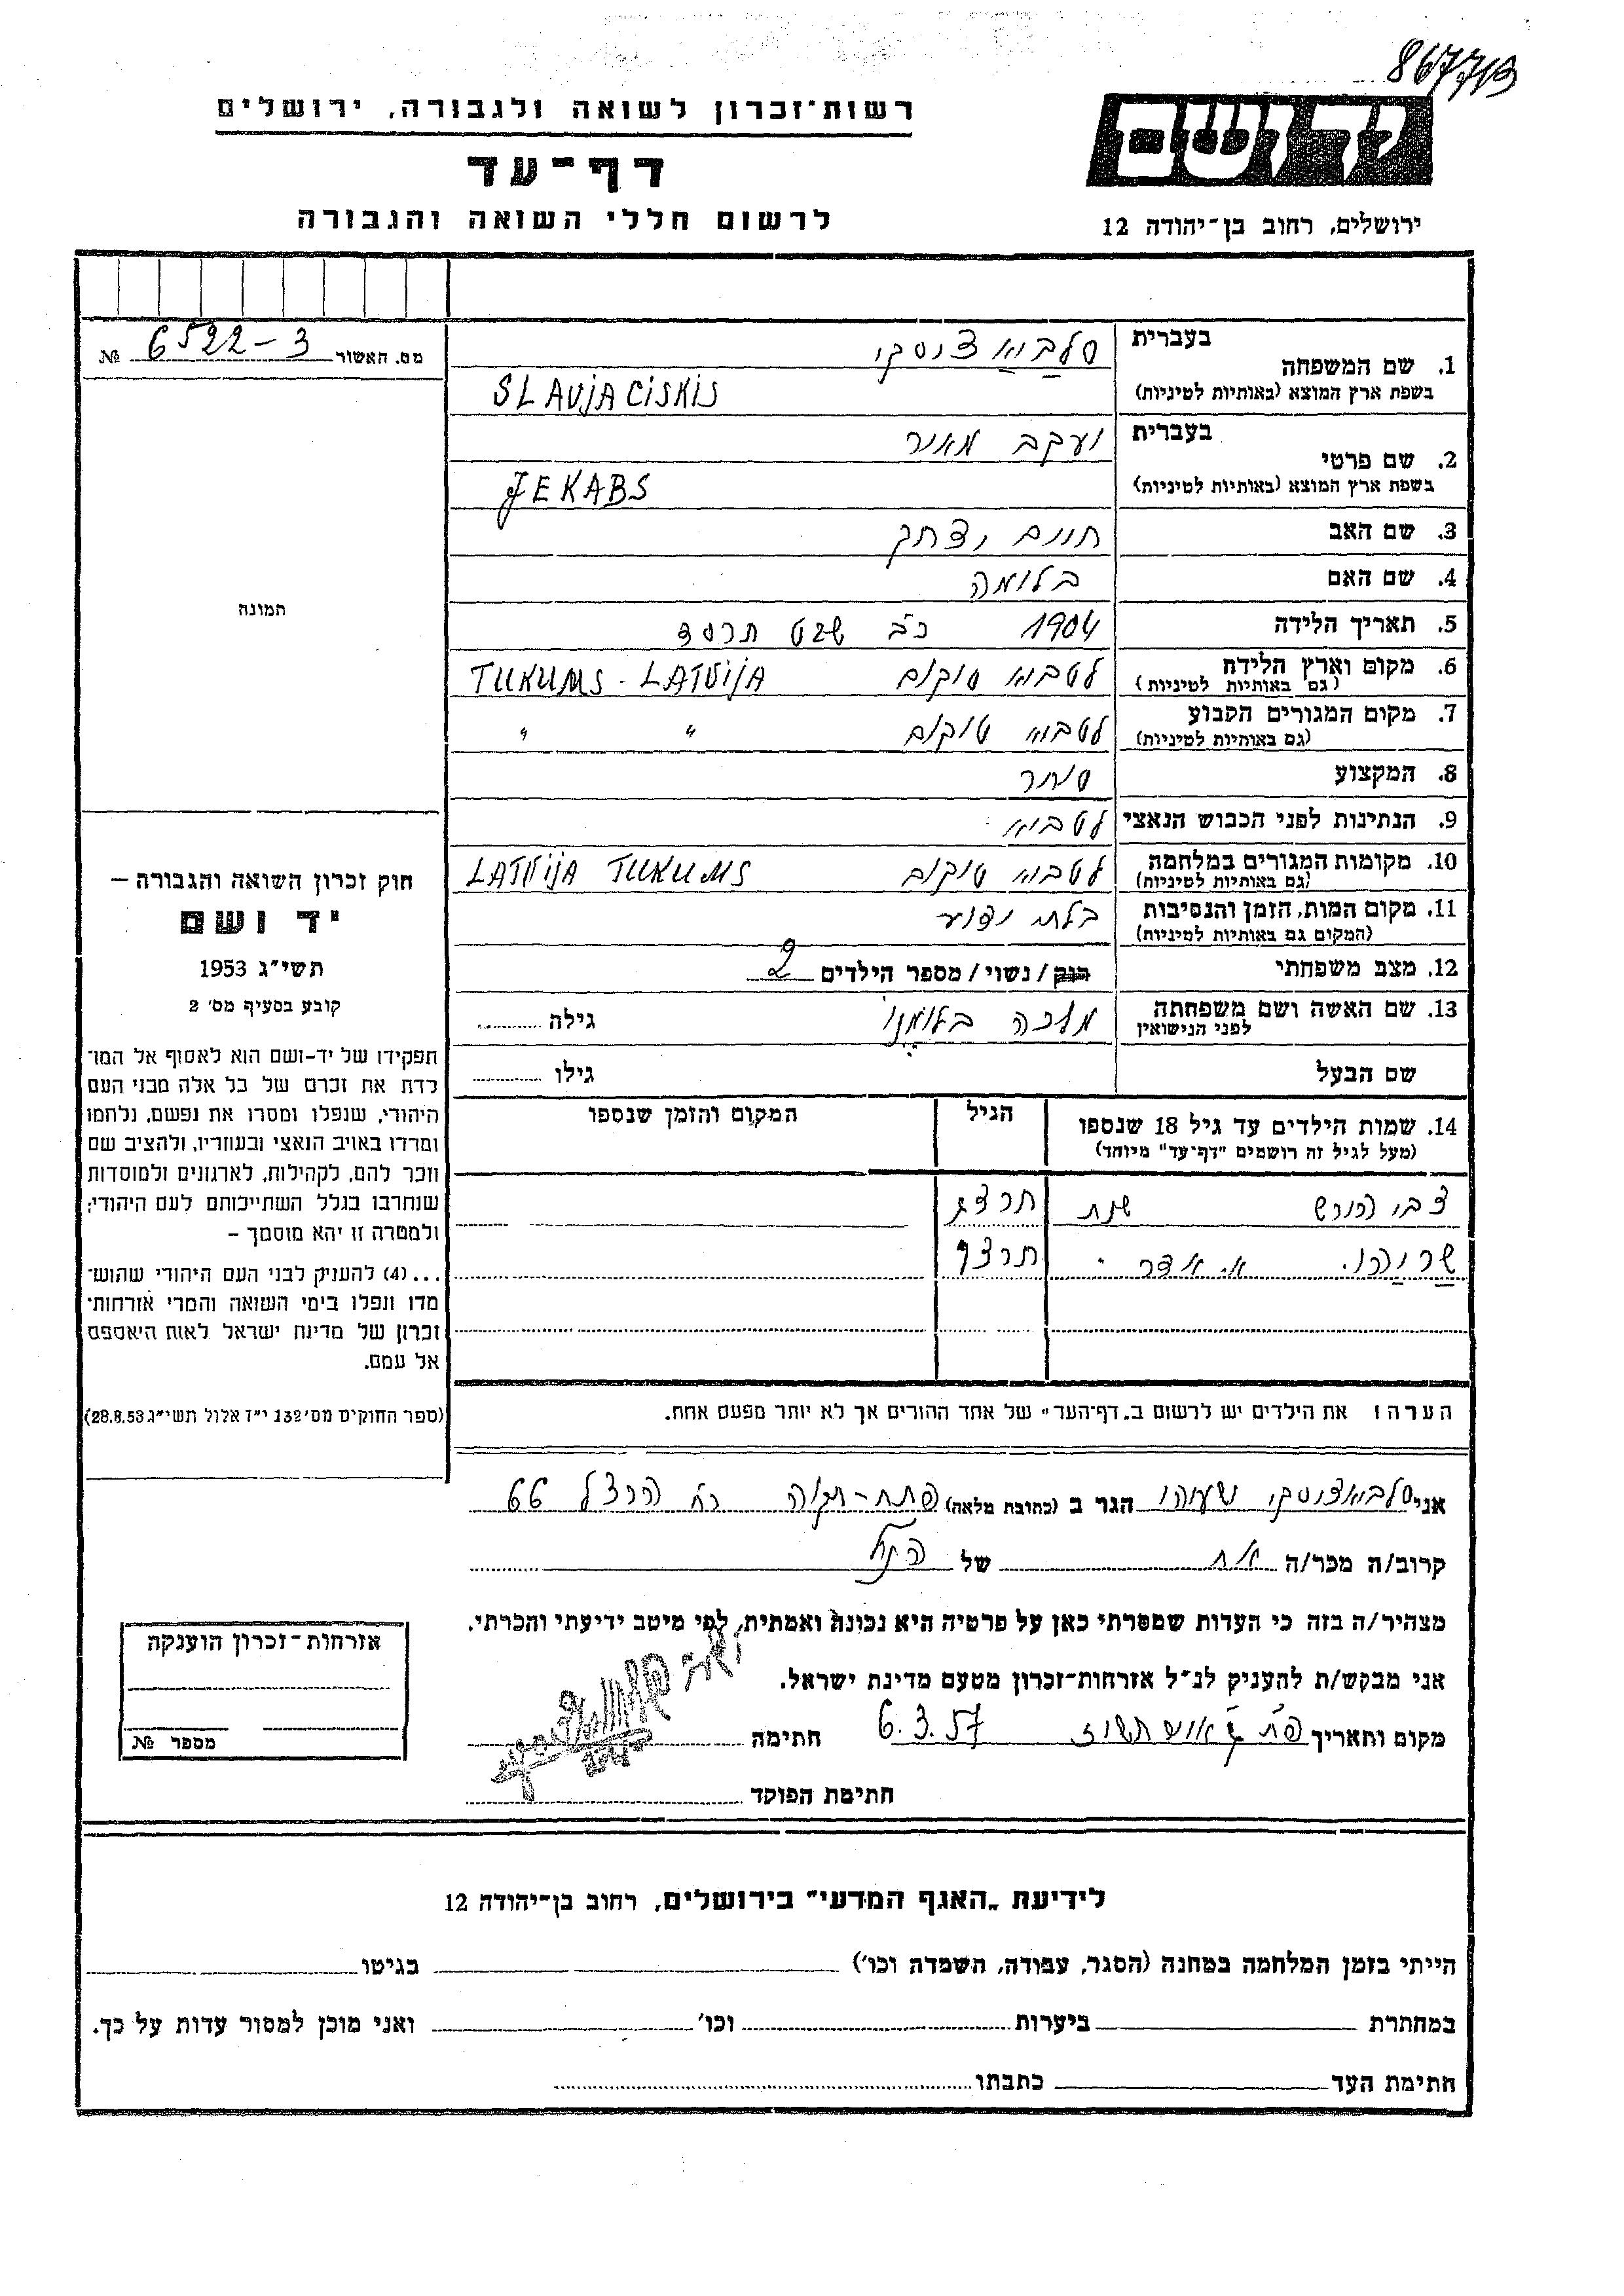 86773
רשות־זכרון לשואה ולגבורה, ירושלים
דף־עד
לרשום חללי השואה והגבורה
יד ושם
ירושלים, רחוב בן־יהודה 12
מס. האשור 6522-3 №
תמונה
חוק זכרון השואה והגבורה —
יד ושם
תשי"ג 1953
קובע בסעיף מס' 2
תפקידו של יד-ושם הוא לאסוף אל המו־
לדת את זכרם של כל אלה מבני העם
היהודי, שנפלו ומסרו את נפשם, נלחמו
ומרדו באויב הנאצי ובעוזריו, ולהציב שם
וזכר להם, לקהילות, לארגונים ולמוסדות
שנחרבו בגלל השתייכותם לעם היהודי;
ולמטרה זו יהא מוסמך –
...(4) להעניק לבני העם היהודי שהוש־
מדו ונפלו בימי השואה והמרי אזרחות־
זכרון של מדינת ישראל לאות היאספם
אל עמם.
(ספר החוקים מס' 132 י"ז אלול תשי"ג 28.8.53)
1. שם המשפחה בעברית סלביאצינסקי
בשפת ארץ המוצא (באותיות לטיניות) SLAVJACISKIS
2. שם פרטי בעברית יעקב מאיר
בשפת ארץ המוצא (באותיות לטיניות) JEKABS
3. שם האב חיים יצחק
4. שם האם בלומה
5. תאריך הלידה 1904 כ"ב שבט תרסד
6. מקום וארץ הלידה לטביא טוקום TUKUMS - LATVIJA
(גם באותיות לטיניות)
7. מקום המגורים הקבוע לטביא טוקום " "
(גם באותיות לטיניות)
8. המקצוע סוחר
9. הנתינות לפני הכבוש הנאצי לטביא
10. מקומות המגורים במלחמה לטביא טוקום LATVIJA TUKUMS
(גם באותיות לטיניות)
11. מקום המות, הזמן והנסיבות בלתי ידוע
(המקום גם באותיות לטיניות)
12. מצב משפחתי רווק / נשוי / מספר הילדים 2
13. שם האשה ושם משפחתה מלכה בלומנוי גילה
לפני הנישואין
שם הבעל גילו
14. שמות הילדים עד גיל 18 שנספו הגיל המקום והזמן שנספו
(מעל לגיל זה רושמים "דף־עד" מיוחד)
צבי הירש שנת תרצג
תרצו
הערה: את הילדים יש לרשום ב„דף־העד" של אחד ההורים אך לא יותר מפעם אחת.
אני סלביאצינסקי ישעיהו הגר ב (כתובת מלאה) פתח-תקוה רח הרצל 66
קרוב/ה מכר/ה אח של הנ"ל
מצהיר/ה בזה כי העדות שמסרתי כאן על פרטיה היא נכונה ואמתית, לפי מיטב ידיעתי והכרתי.
אני מבקש/ת להעניק לנ"ל אזרחות־זכרון מטעם מדינת ישראל.
מקום ותאריך פ"ת 6.3.57 חתימה
חתימת הפוקד
אזרחות־זכרון הוענקה
מספר №
לידיעת „האגף המדעי" בירושלים, רחוב בן־יהודה 12
הייתי בזמן המלחמה במחנה (הסגר, עבודה, השמדה וכו') בגיטו
במחתרת ביערות וכו' ואני מוכן למסור עדות על כך.
חתימת העד כתבתו